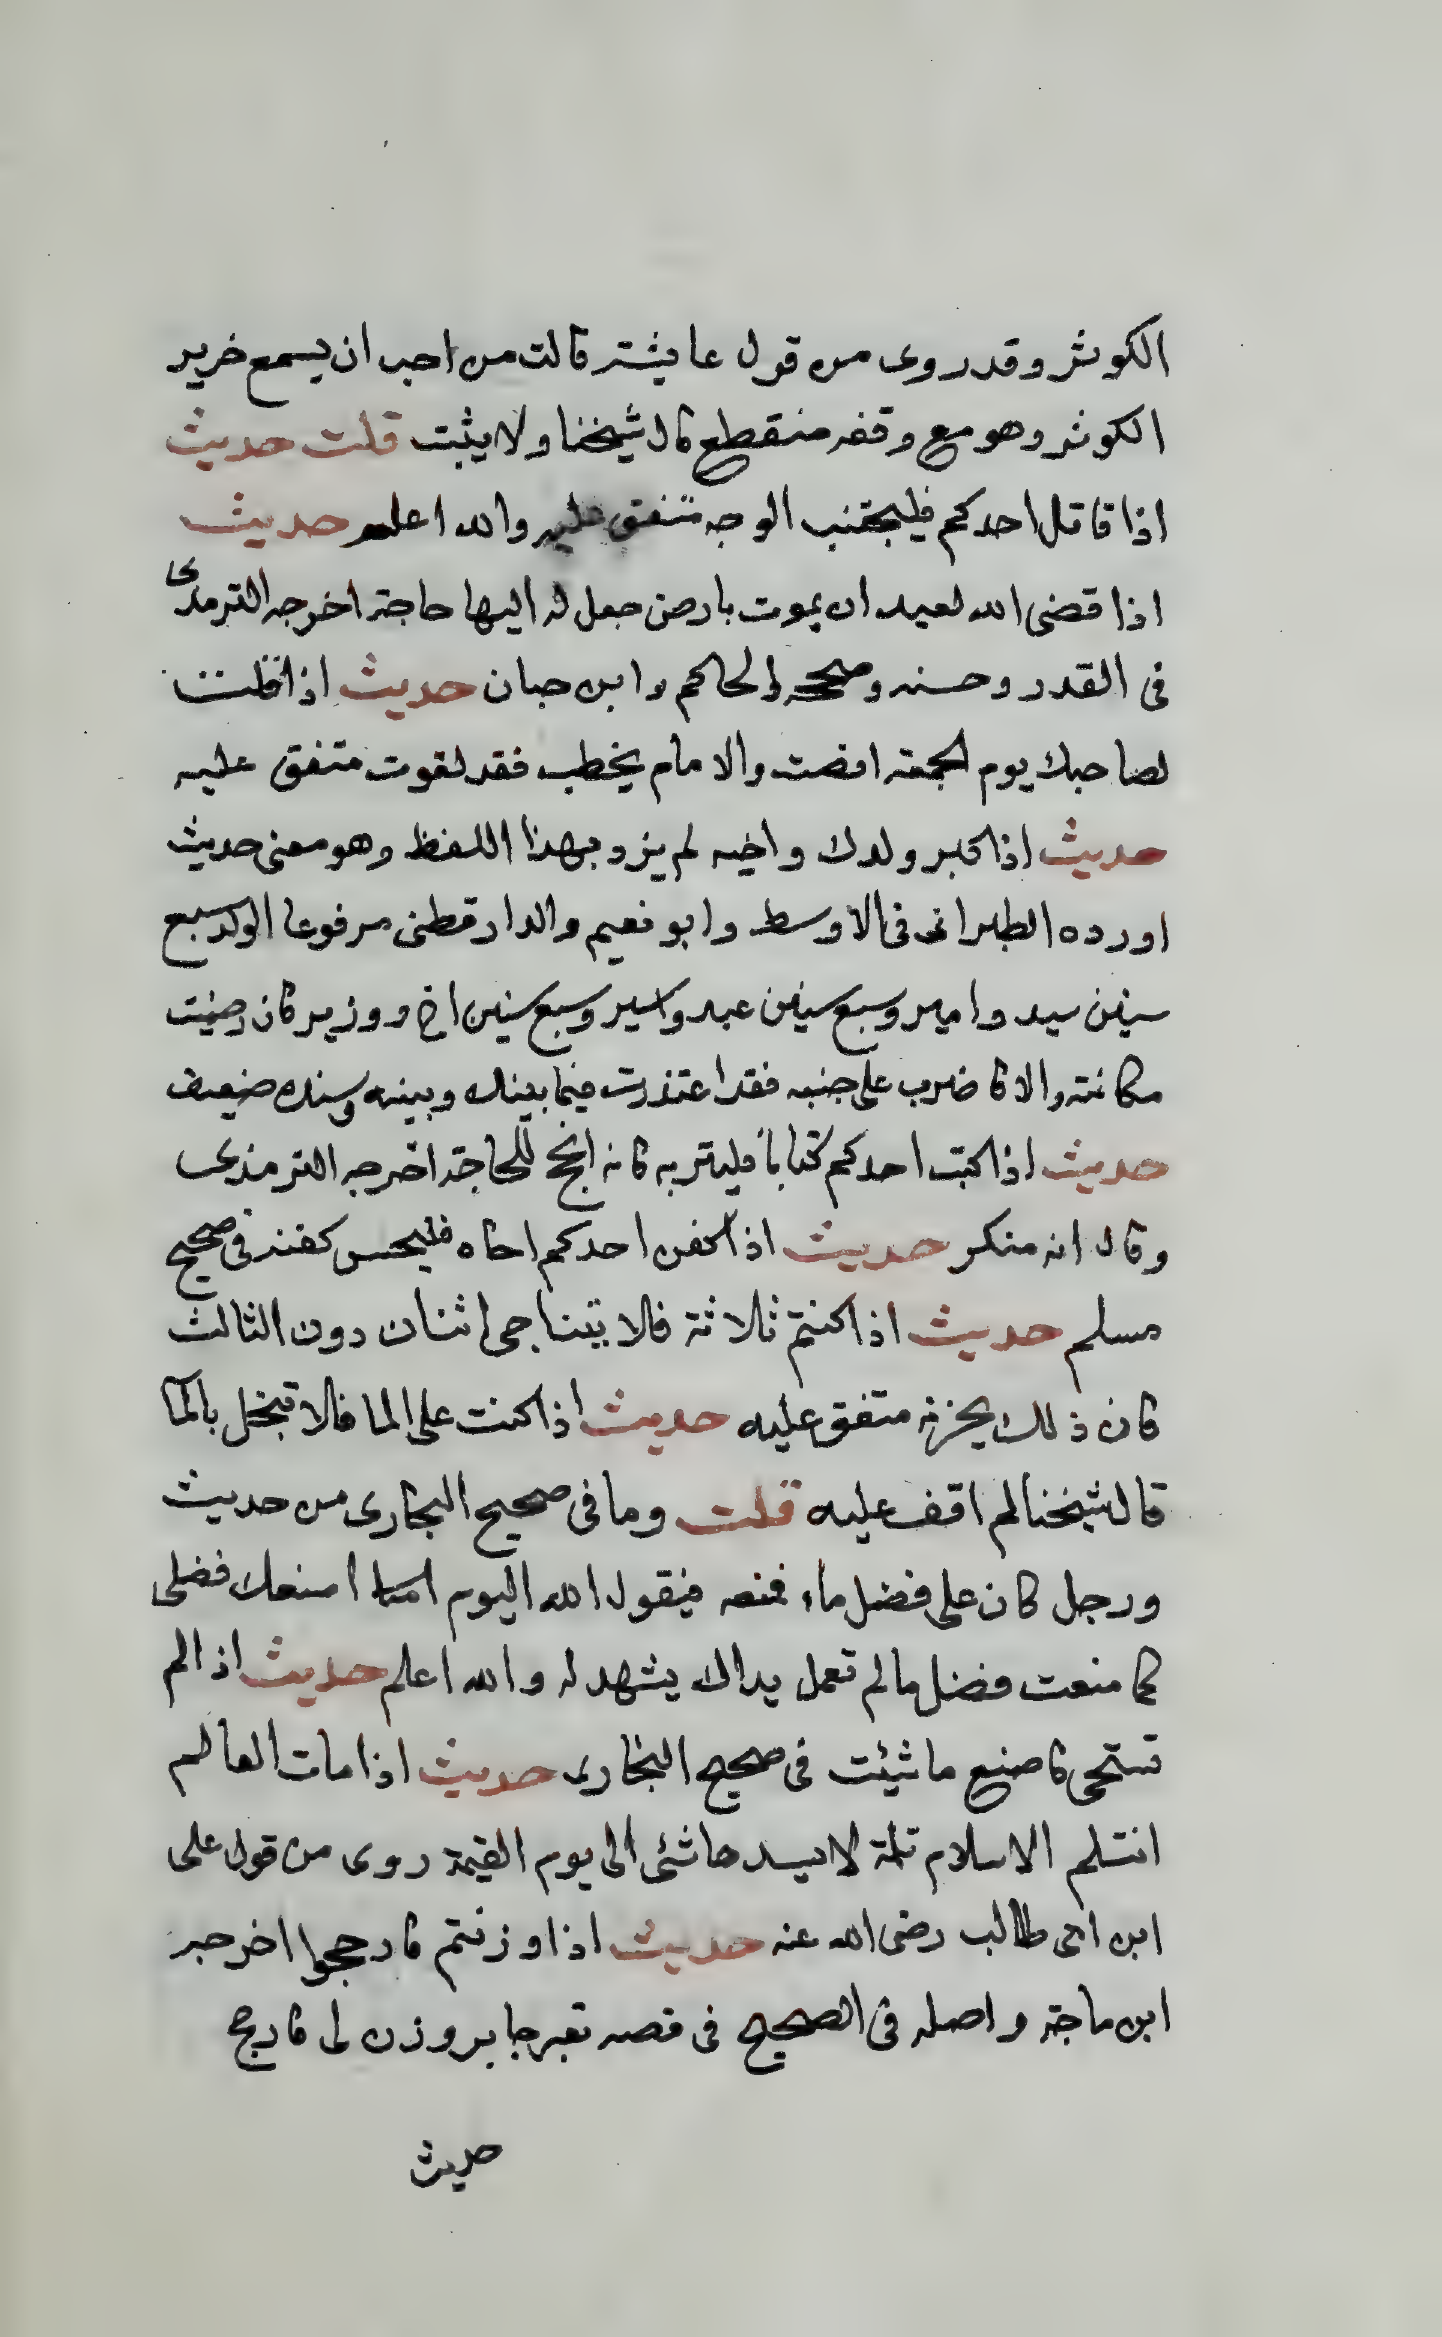 الكوثر وقد روى من قول عايشة قالت من احب ان يسمع خرير
الكوثر وهو مع وقفه منقطع قال شيخنا ولا يثبت قلت حديث
اذا قاتل احدكم فليجتنب الوجه متفق عليه والله اعلم حديث
اذا قضى الله لعبد ان يموت بارض جعل له اليها حاجة اخرجه الترمذى
فى القدر وحسنه وصححه الحاكم وابن حبان حديث اذا قلت
لصاحبك يوم الجمعة انصت والامام يخطب فقد لغوت متفق عليه
حديث اذا كبر ولدك واخيه لم يرد بهذا اللفظ وهو معنى حديث
اورده الطبرانى فى الاوسط وابو نعيم والدارقطنى مرفوعا الولد سبع
سنين سيد وامير وسبع سنين عبد واسير وسبع سنين اخ ووزير فان رضيت
مكانته والا فاضرب على جنبه فقد اعتذرت فيما بينك وبينه وسنده ضعيف
حديث اذا كتب احدكم كتابا فليتربه فانه انجح للحاجة اخرجه الترمذى
وقال انه منكر حديث اذا كفن احدكم اخاه فليحسن كفنه فى صحيح
مسلم حديث اذا كنتم ثلاثة فلا يتناجى اثنان دون الثالث
فان ذلك يحزنه متفق عليه حديث اذا كنت على الما فلا تبخل بالما
قال شيخنا لم اقف عليه قلت وما فى صحيح البخارى من حديث
ورجل كان على فضل ماء فمنعه فيقول الله اليوم امنعك فضلى
كما منعت فضل ما لم تعمل يداك يشهد له والله اعلم حديث اذا لم
تستحى فاصنع ما شئت فى صحيح البخارى حديث اذا مات العالم
انثلم الاسلام ثلمة لا يسدها شئ الى يوم القيمة روى من قول على
ابن ابى طالب رضى الله عنه حديث اذا وزنتم فارجحوا اخرجه
ابن ماجة واصله فى الصحيح فى قصة بعير جابر وزن لى فارجح
حديث